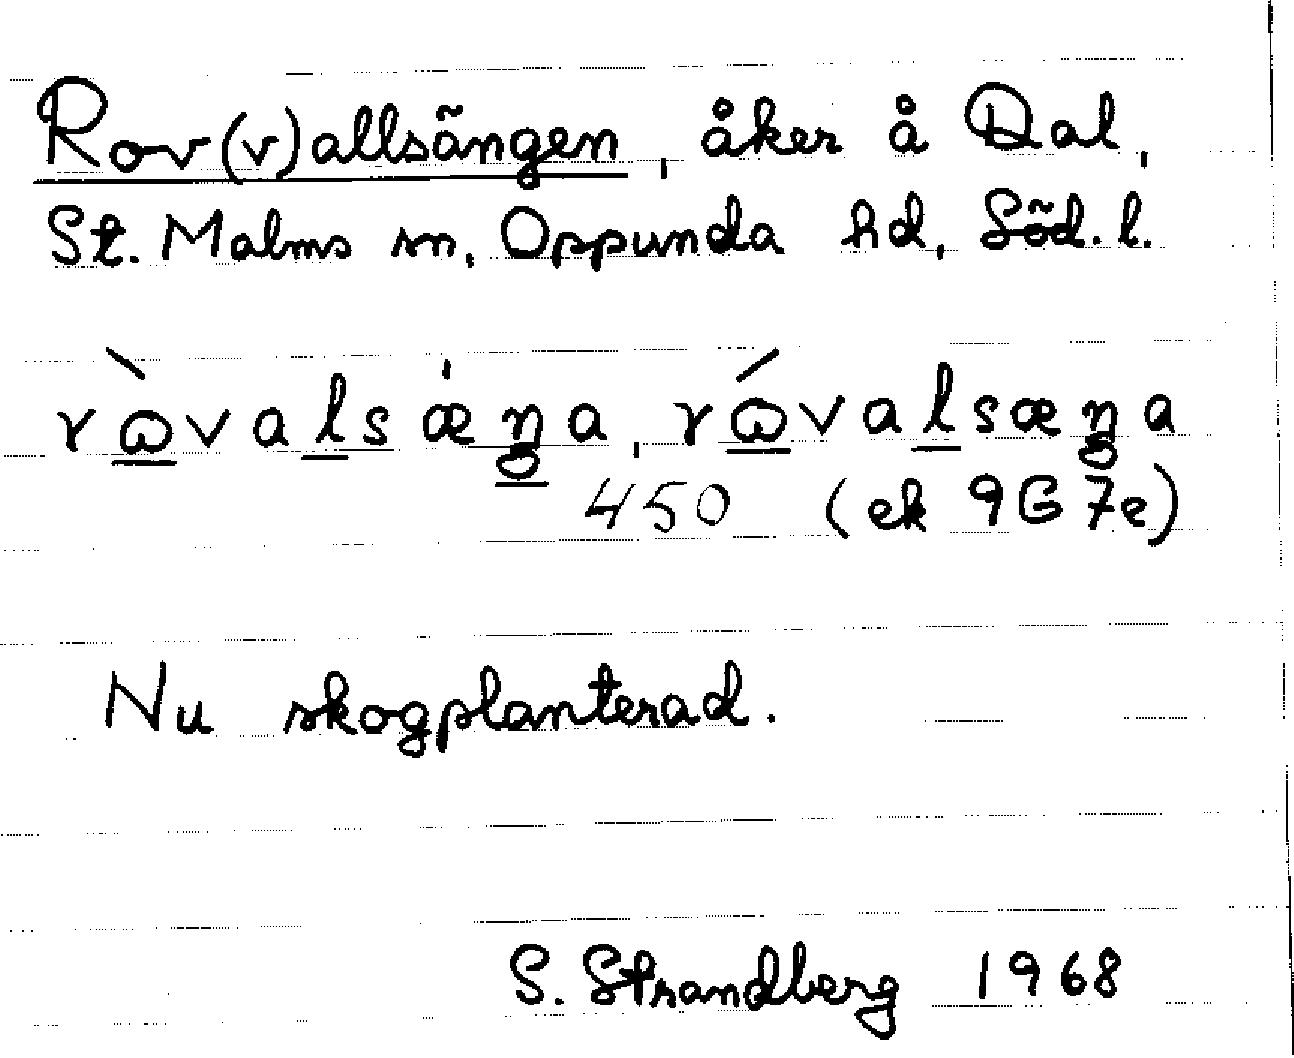 Rov(v)allsängen, åker å Dal,
St. Malms sn, Oppunda hd, Söd. l.
rὼvalsæ̍ŋa, rώvalsæŋa
450 (ek 9G 7e)
Nu skogplanterad.
S. Strandberg 1968